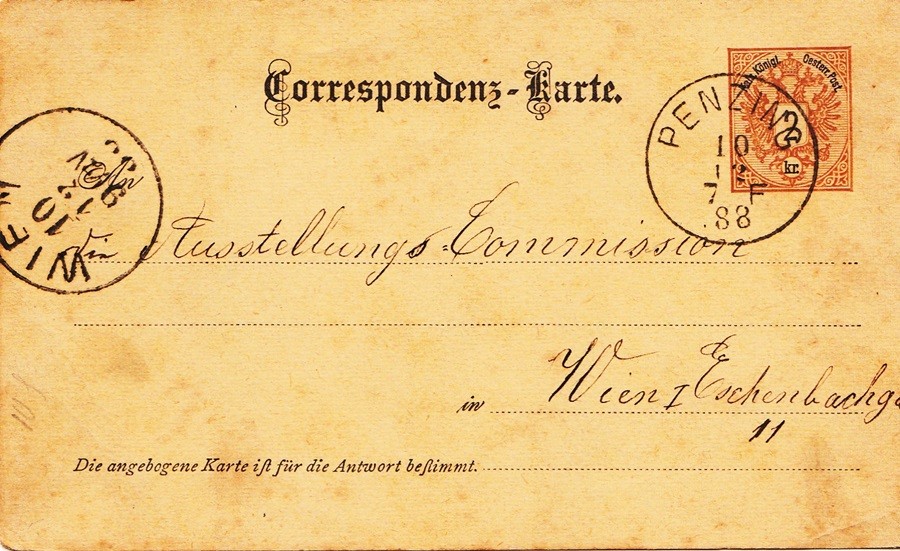 Correspondenz-Karte.
Kais. Königl. Oesterr. Post.
2
kr.
PENZING
10
12
7 F
88
WIEN
An
Ausstellungs-Commission
in Wien I Eschenbachga
11
Die angebogene Karte iſt für die Antwort beſtimmt.